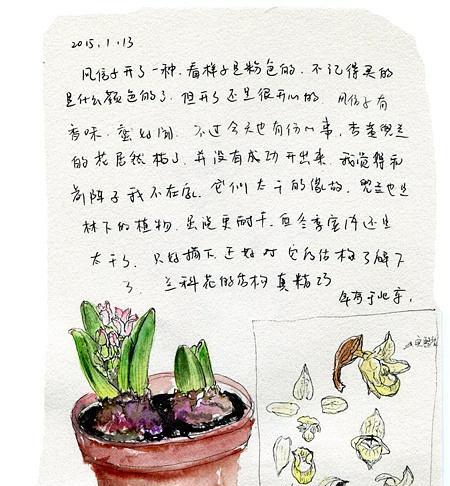 2015.1.13
风信子开了一种.看样子是粉色的.不记得买的
是什么颜色的了.但开了还是很开心的.风信子有
香味.蛮好闻.不过今天也有伤心事,杏黄兜兰
的花居然枯了.并没有成功开出来.我觉得和
前阵子我不在家.它们太干的缘故.兜兰也是
林下的植物.虽说更耐干.但冬季室内还是
太干了.只好摘下.正好对它的结构了解下
了.兰科花的结构真精巧
年 于北京.